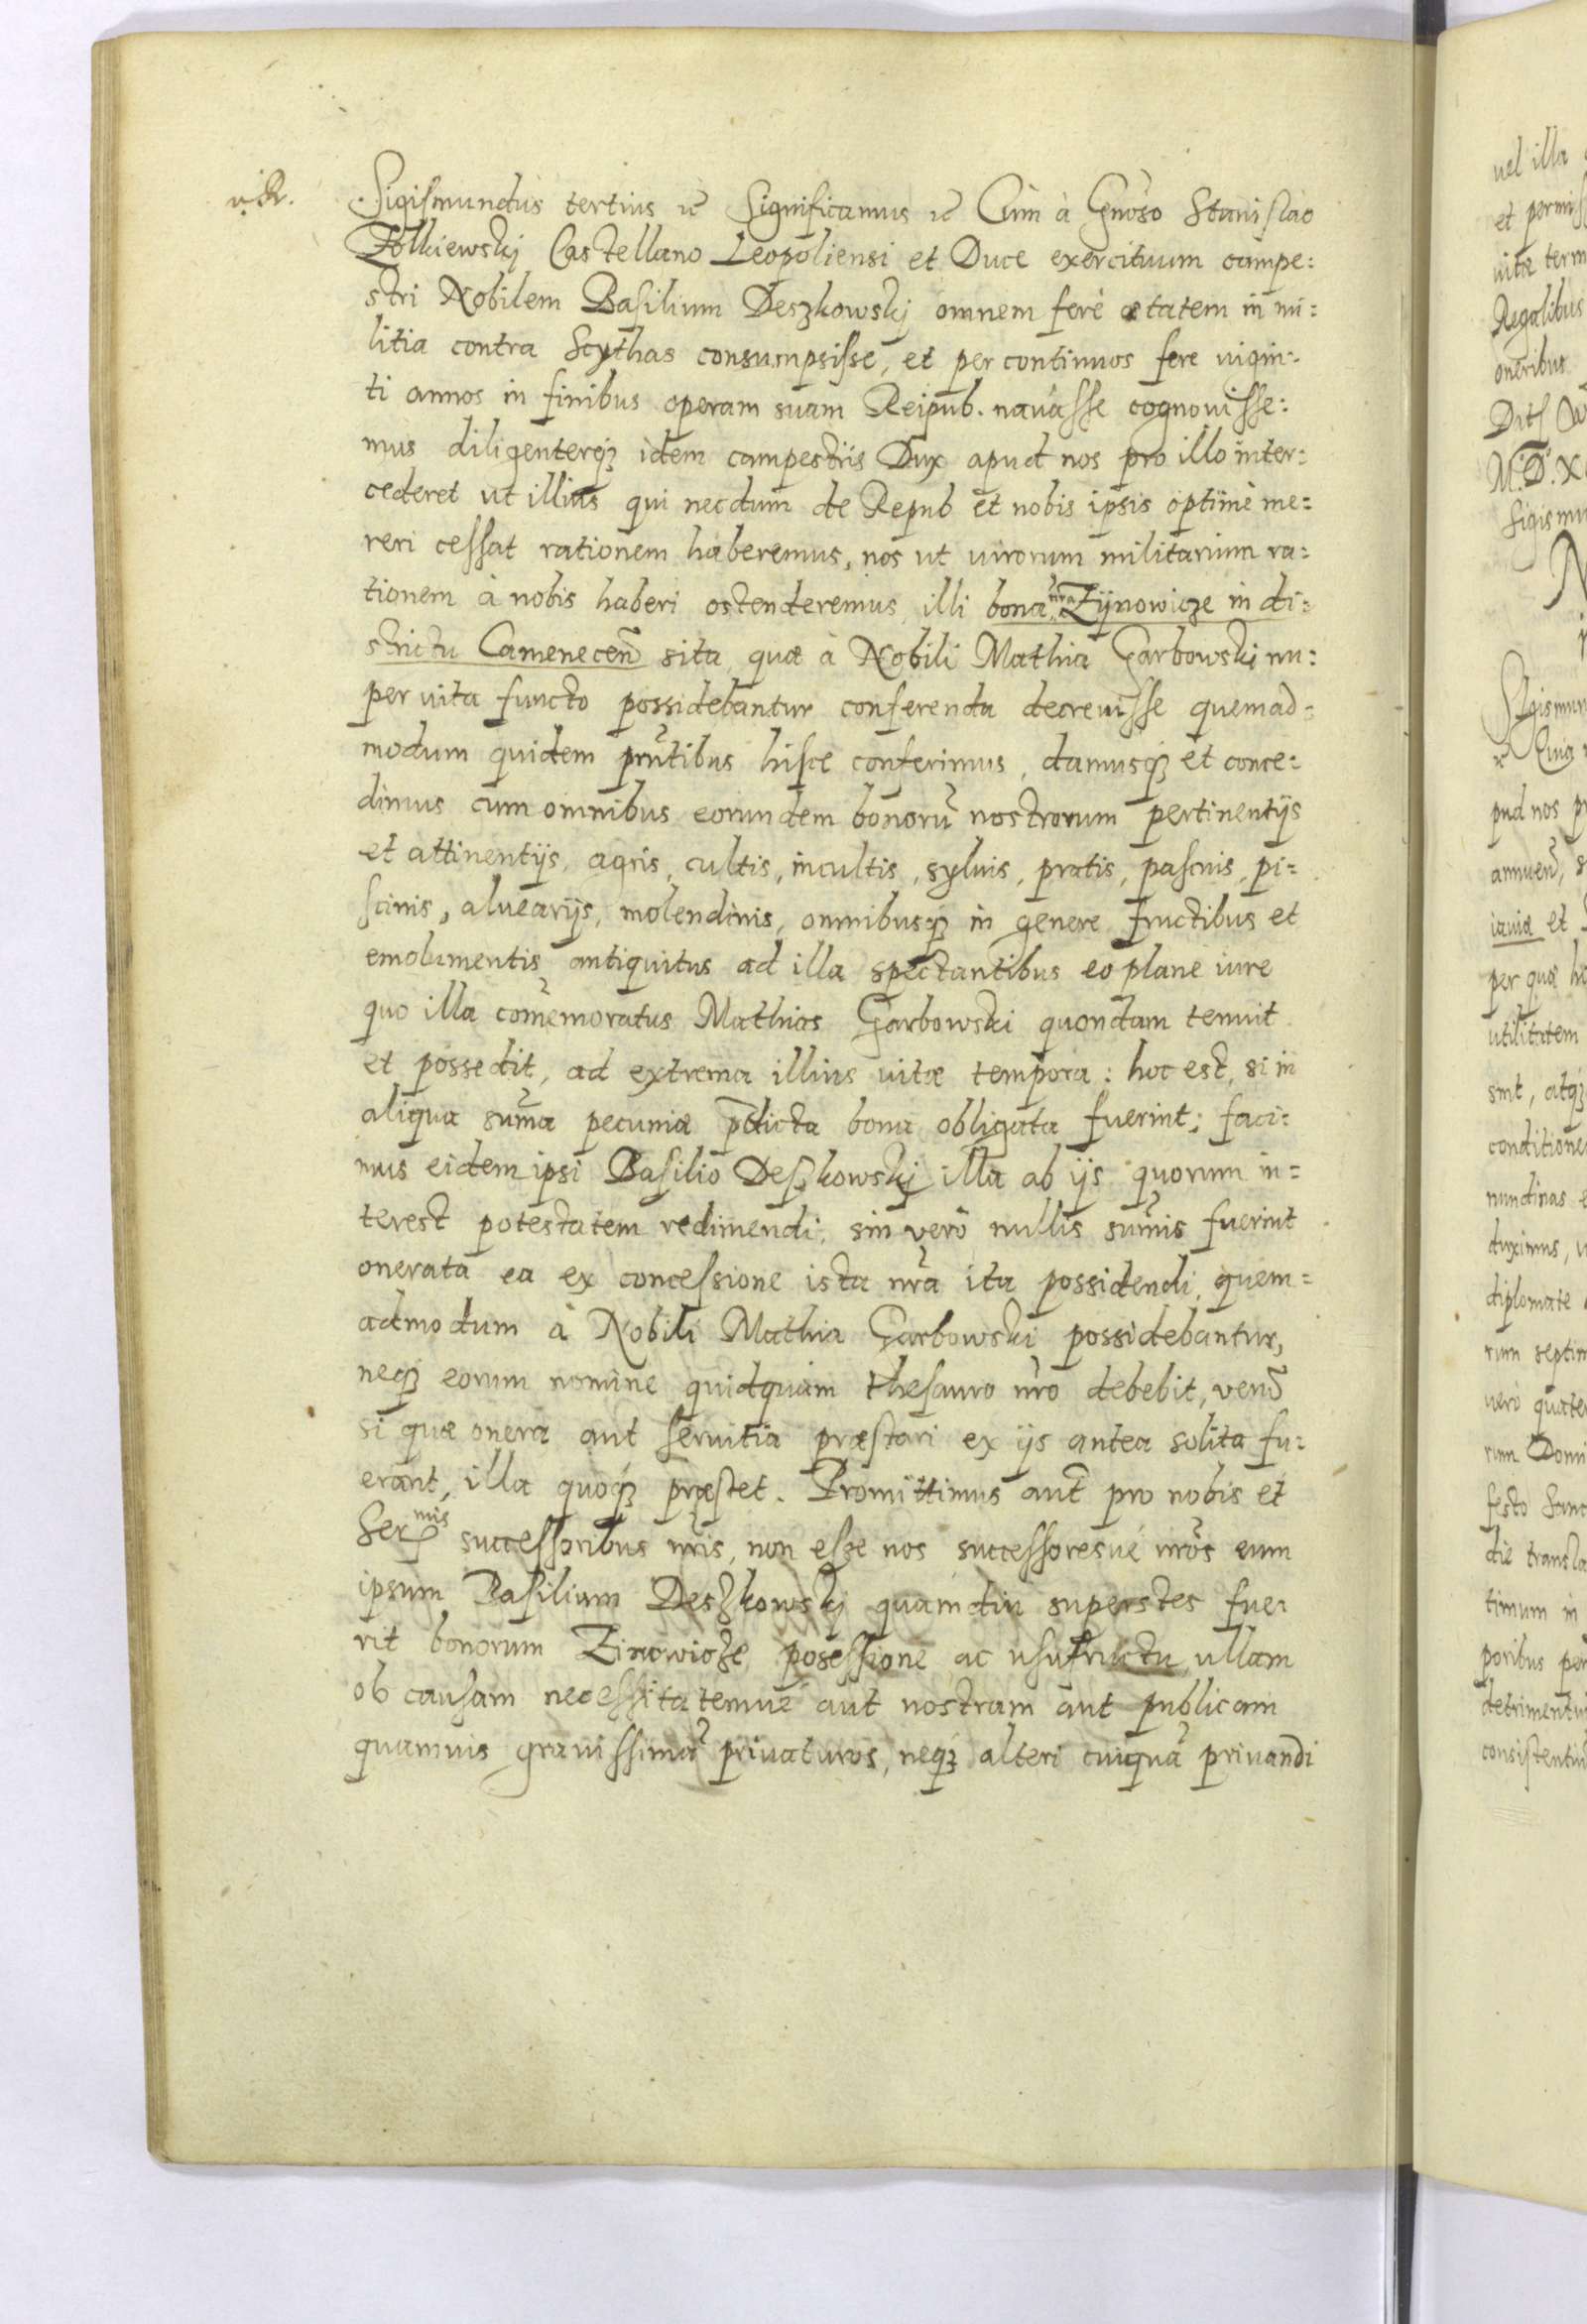 Sigismundus tertius etc Significamus etc Cùm à Gnõso Stanislao
Zolkiewskj Castellano Leopoliensi et Duce exercituum campe:
stri Nobilem Basilium Deszkowskj omnem ferè ætatem in mi:
litia contra Scythas consumpsisse, et per continuos fere uigin:
ti annos in finibus operam suam Reipub. nauasse cognouisse:
mus diligenterq́ idem campestris Dux apud nos pro illo inter:
cederet ut illius qui necdum de Repub et nobis ipsis optimè me:
reri cessat rationem haberemus, nos ut uirorum militarium ra:
tionem à nobis haberi ostenderemus, illi bona nr̃a Zÿnowicze in di:
strictu Camenecen̄ sita, quæ à Nobili Mathia Garbowski nu:
per uita functo possidebantur conferenda decreuisse quemad:
modum quidem prñtibus hisce conferimus, damusq́ et conce:
dimus cum omnibus eorundem bonorũ nostrorum pertinentijs
et attinentijs, agris, cultis, incultis, syluis, pratis, pascuis, pi:
scinis, aluearijs, molendinis, omnibusq́ in genere fructibus et
emolumentis antiquitus ad illa spectantibus eo plane iure
quo illa com̃emoratus Mathias Garbowski quondam tenuit
et possedit, ad extrema illius uitæ tempora: hoc est, si in
aliqua sum̃a pecuniæ p̄dicta bona obligata fuerint; faci:
mus eidem ipsi Basilio Deszkowskj illa ab ijs quorum in:
terest potestatem redimendi; sin verò nullis sum̃is fuerint
onerata ea ex concessione ista nr̃a ita possidendi, quem:
admodum à Nobili Mathia Garbowski possidebantur,
neq́ eorum nomine quidquam thesauro nr̃o debebit, verũ
si quæ onera aut seruitia præstari ex ijs antea solita fu:
erant, illa quoq́ præstet. Promittimus aut̃ pro nobis et
Ser^mis successoribus nr̃is, non esse nos successoresue nr̃os eum
ipsum Basilium Deszkowskj quamdiu superstes fue:
rit bonorum Zinowicze possessione ac usufructu ullam
ob causam necessitatemue aut nostram aut publicam
quamuis grauissimã priuaturos, neq́ alteri cuiquã priuandi
uel illa
et permis
uitæ term
Regalibus
oneribus
M.D.X
Sigismu
Sigismun
pud nos
iauiæ et
per quæ
utilitatem
sint, atq́
conditione
nundinas
duximus,
diplomate
rum septim
uerò quate
rum Domi
festo Sanc
die transla
timum in
poribus per
detrimentu
consistentiu